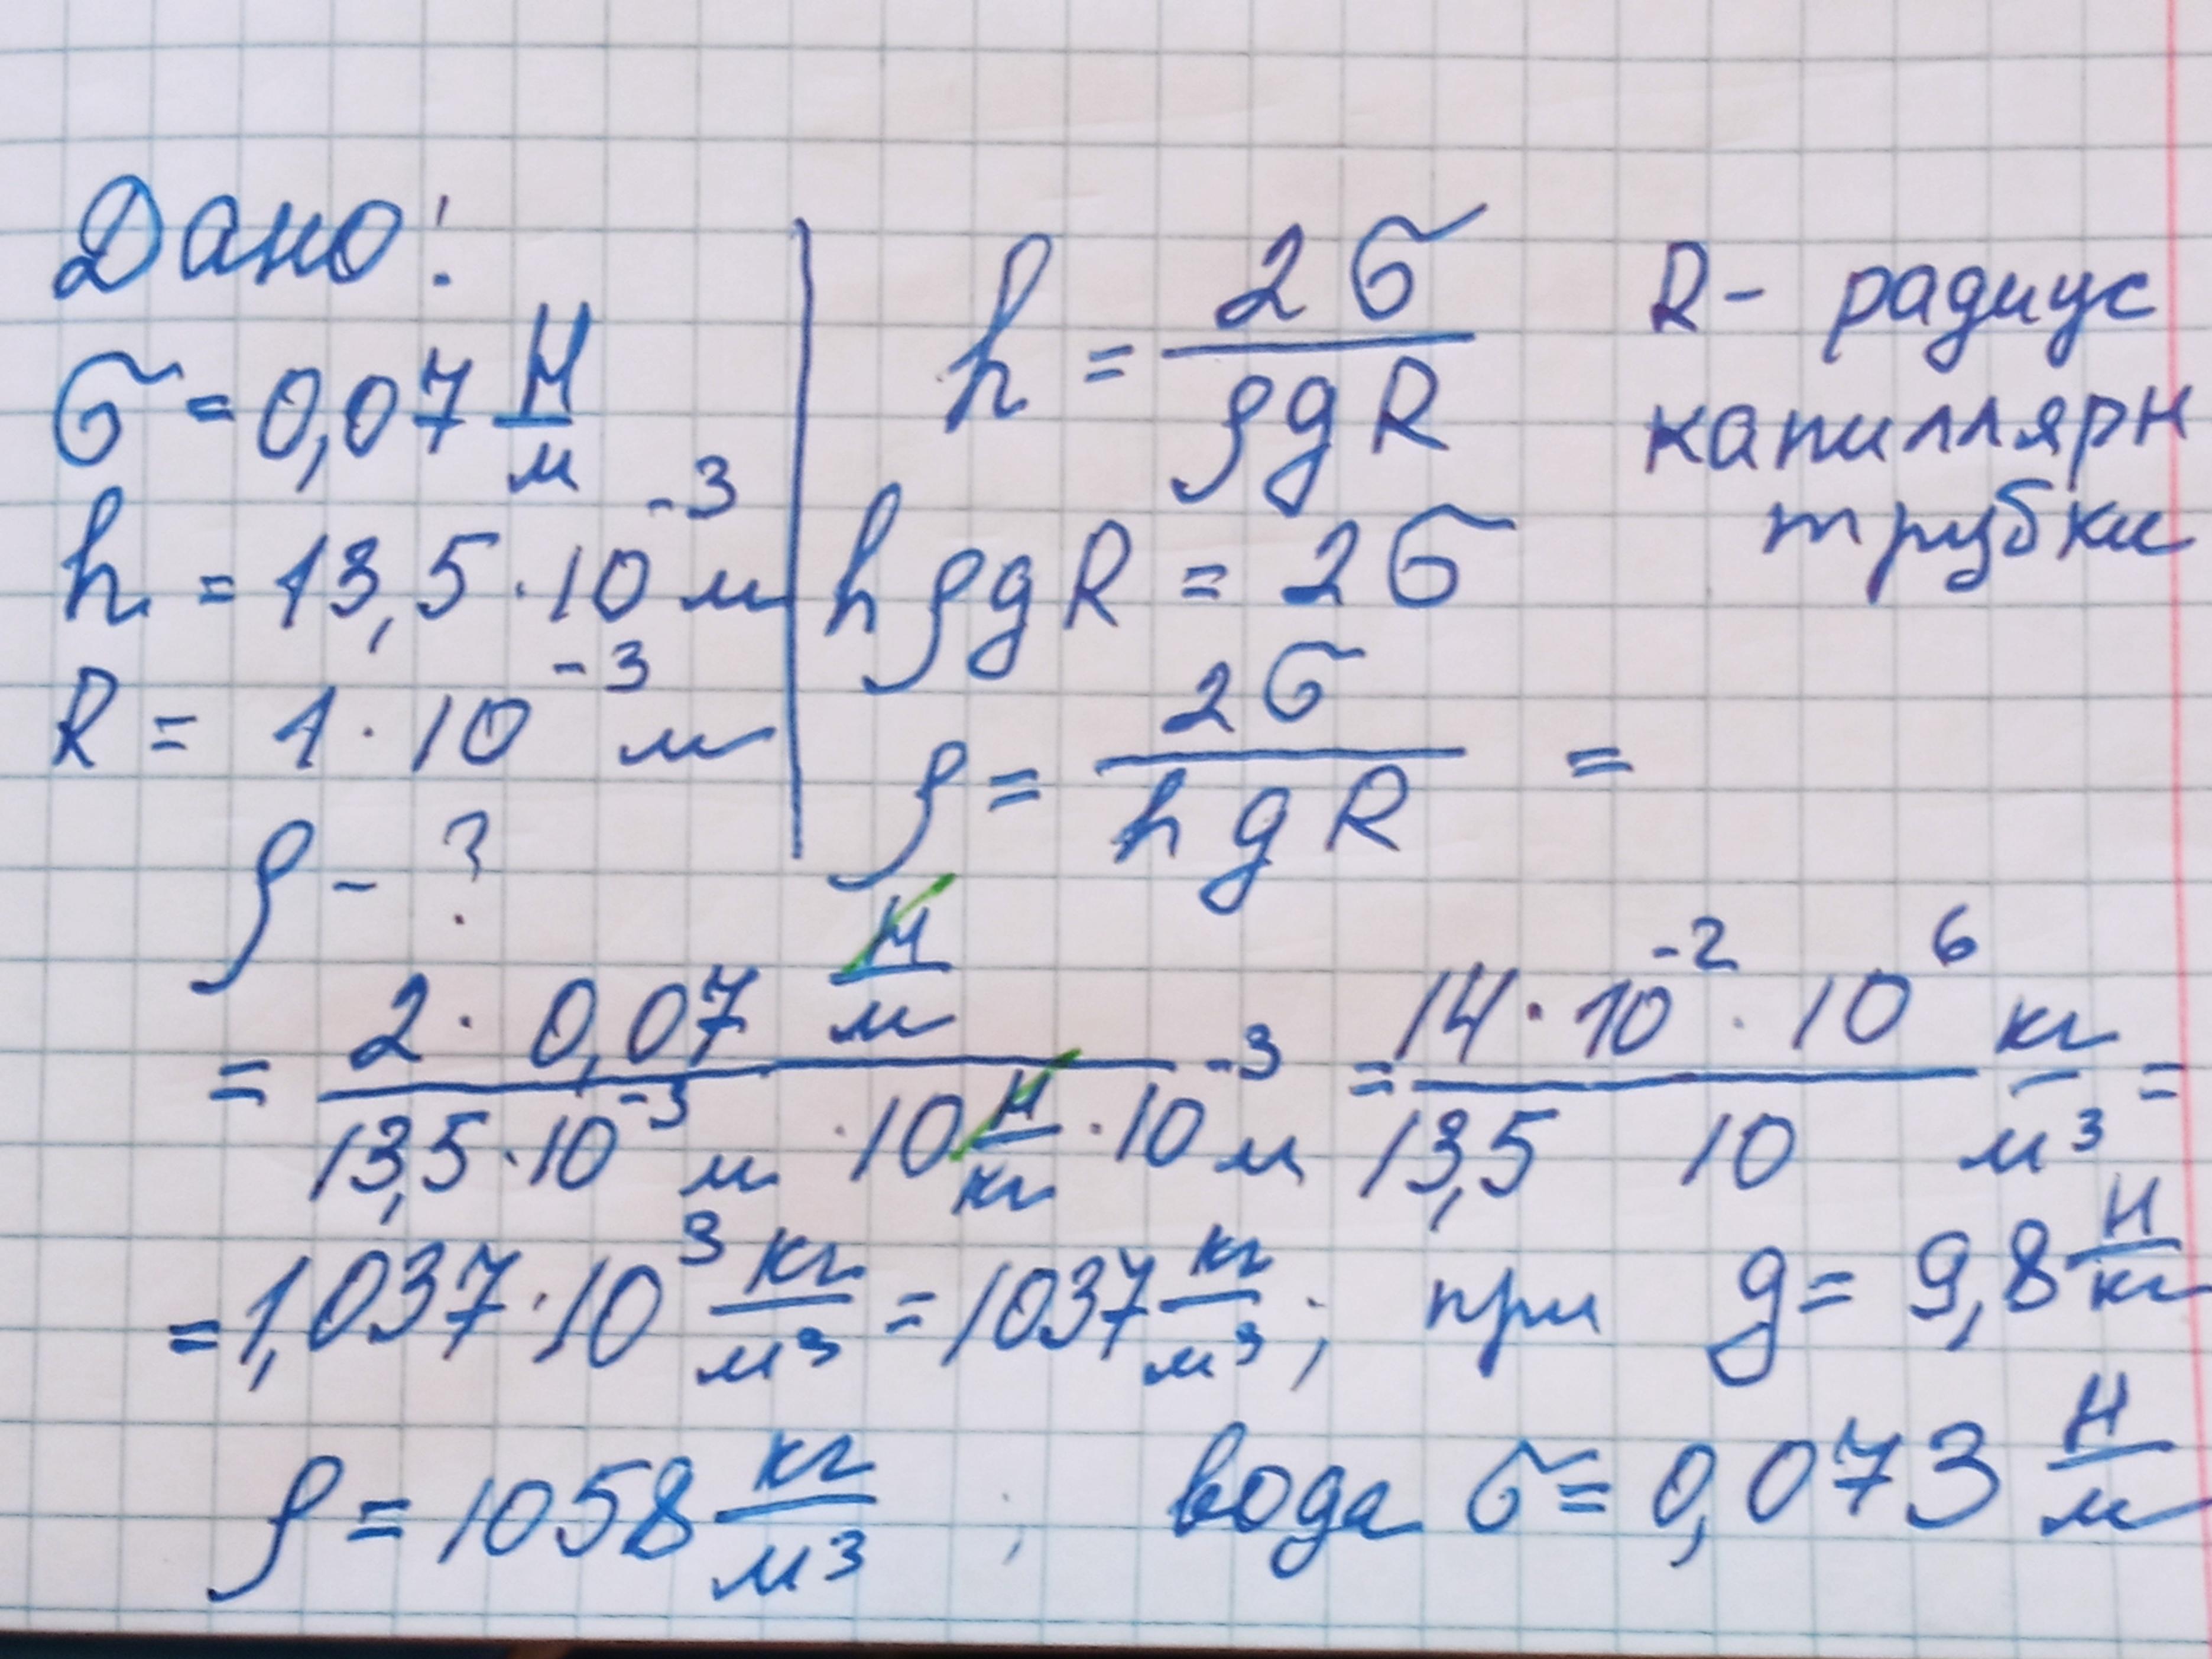 Дано:
σ = 0,07 Н/м
h = 13,5 · 10⁻³ м
R = 1 · 10⁻³ м
ρ - ?
h = 2σ / ρgR
hρgR = 2σ
ρ = 2σ / hgR =
R - радиус
капиллярн
трубки
= 2 · 0,07 Н/м / 13,5 · 10⁻³ м · 10 Н/кг · 10⁻³ м = 14 · 10⁻² · 10⁶ / 13,5 10 кг/м³ =
= 1,037 · 10³ кг/м³ = 1037 кг/м³ ; при g = 9,8 Н/кг
ρ = 1058 кг/м³ ; вода σ = 0,073 Н/м